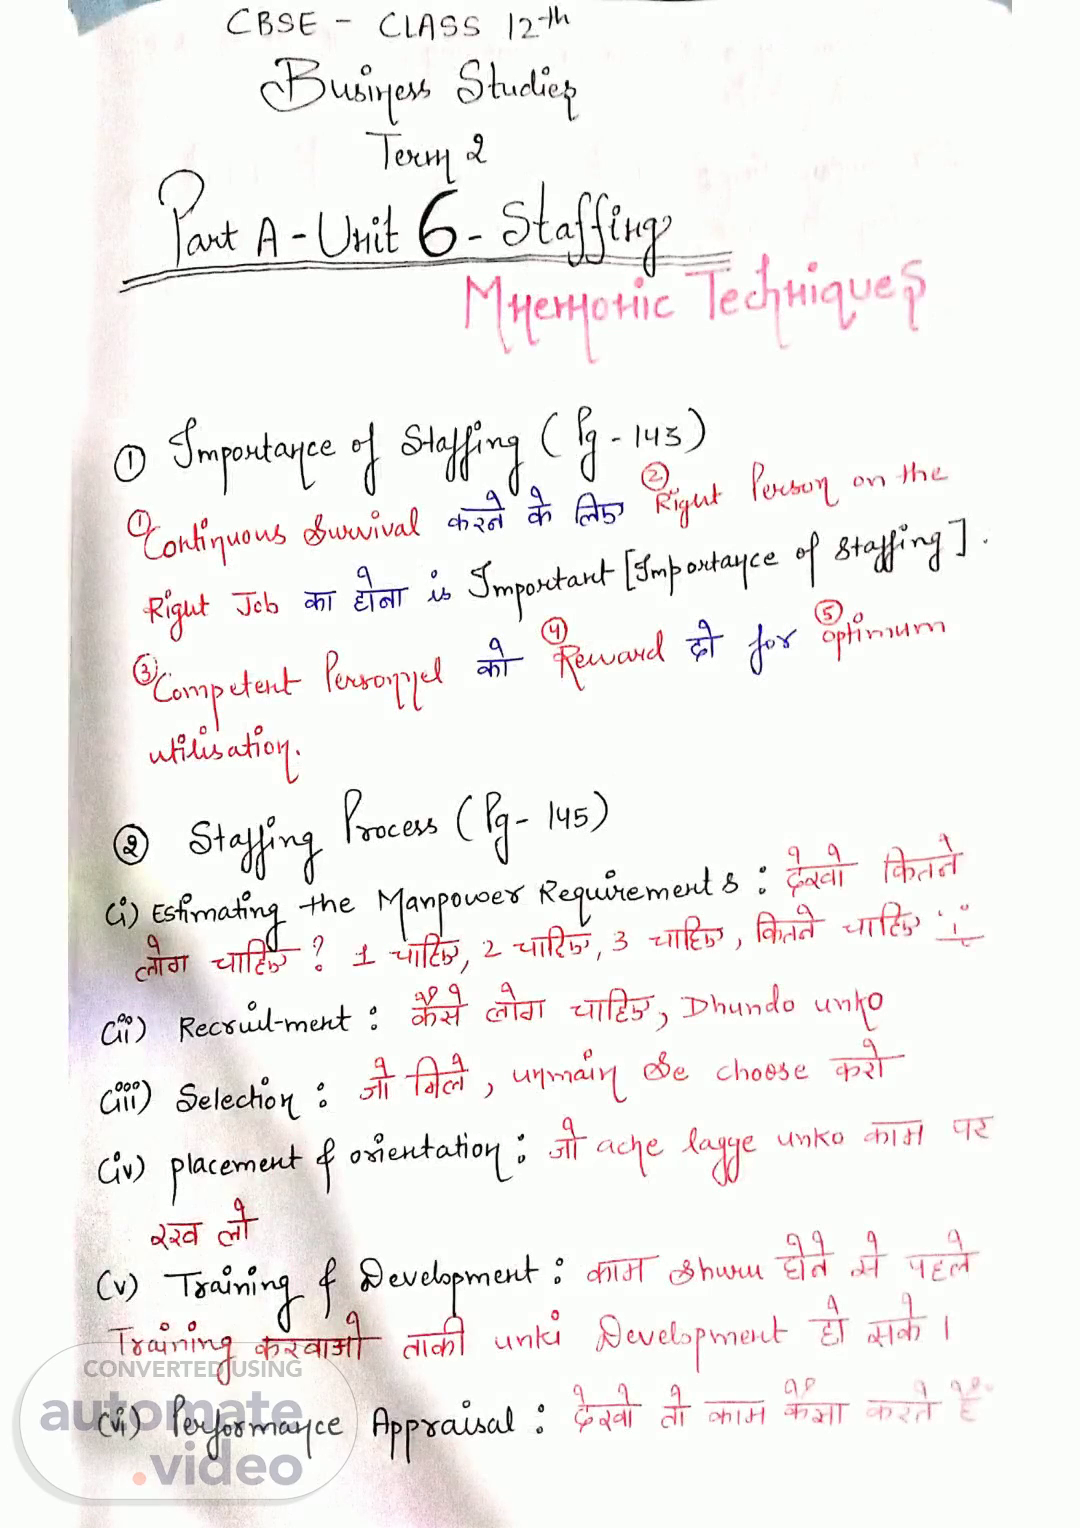 CBSE - CLASS 12th
Business Studies
Term 2
Part A - Unit 6 - Staffing
Mnemonic Techniques
① Importance of Staffing (Pg - 143)
① Continuous Survival करने के लिए ② Right Person on the
Right Job का होना is Important [Importance of staffing].
③ Competent Personnel को ④ Reward दो for ⑤ optimum
utilisation.
② Staffing Process (Pg - 145)
(i) Estimating the Manpower Requirements : देखो कितने
लोग चाहिए ? 1 चाहिए, 2 चाहिए, 3 चाहिए, कितने चाहिए
(ii) Recruitment : कैसे लोग चाहिए, Dhundo unko
(iii) Selection : जो मिले, unmain se choose करो
(iv) placement & orientation : जो ache lagge unko काम पर
रख लो
(v) Training & Development : काम shuru होने से पहले
Training करवाओ ताकी unki Development हो सके ।
(vi) Performance Appraisal : देखो तो काम कैसा करते हैं
CONVERTED USING
automate
.video